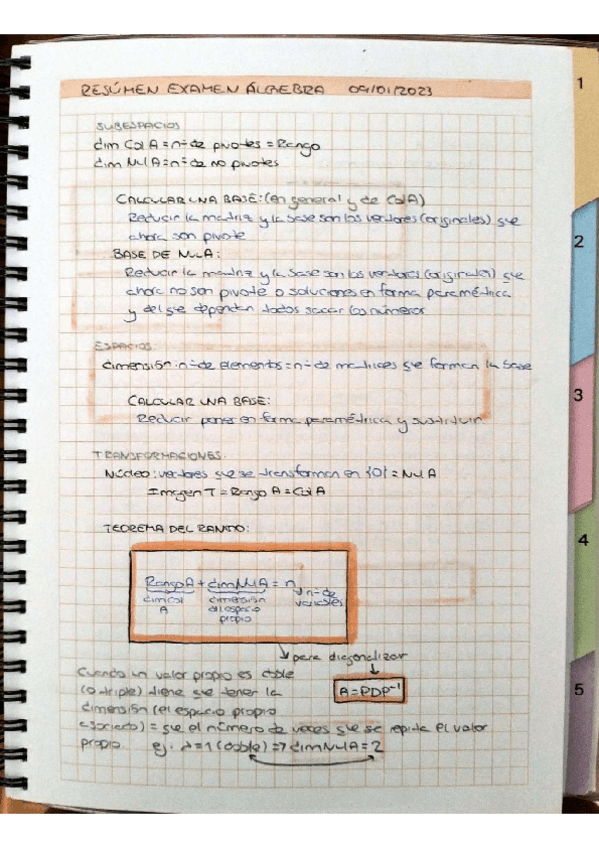 RESÚMEN EXAMEN ÁLGEBRA 09/01/2023
1
SUBESPACIOS
dim Col A = nº de pivotes = Rango
dim Nul A = nº de no pivotes
CALCULAR UNA BASE: (en general y de Col A)
Reducir la matriz y la base son los vectores (originales) que
ahora son pivote
2
BASE DE NUL A:
Reducir la matriz y la base son los vectores (originales) que
ahora no son pivote o soluciones en forma paramétrica
y del que dependan todos sacar los números
ESPACIOS
dimensión: nº de elementos = nº de matrices que forman la base
3
CALCULAR UNA BASE:
Reducir poner en forma paramétrica y sustituir
TRANSFORMACIONES:
Núcleo: vectores que se transforman en {0} = Nul A
Imagen T = Rango A = Col A
TEOREMA DEL RANGO:
4
Rango A + dim Nul A = n
dim Col A
dimensión del espacio propio
nº de variables
para diagonalizar
A = PDP⁻¹
5
Cuando un valor propio es doble
(o triple) tiene que tener la
dimensión (el espacio propio
asociado) = que el número de veces que se repite el valor
propio. ej. λ=1 (doble) => dim Nul A = 2